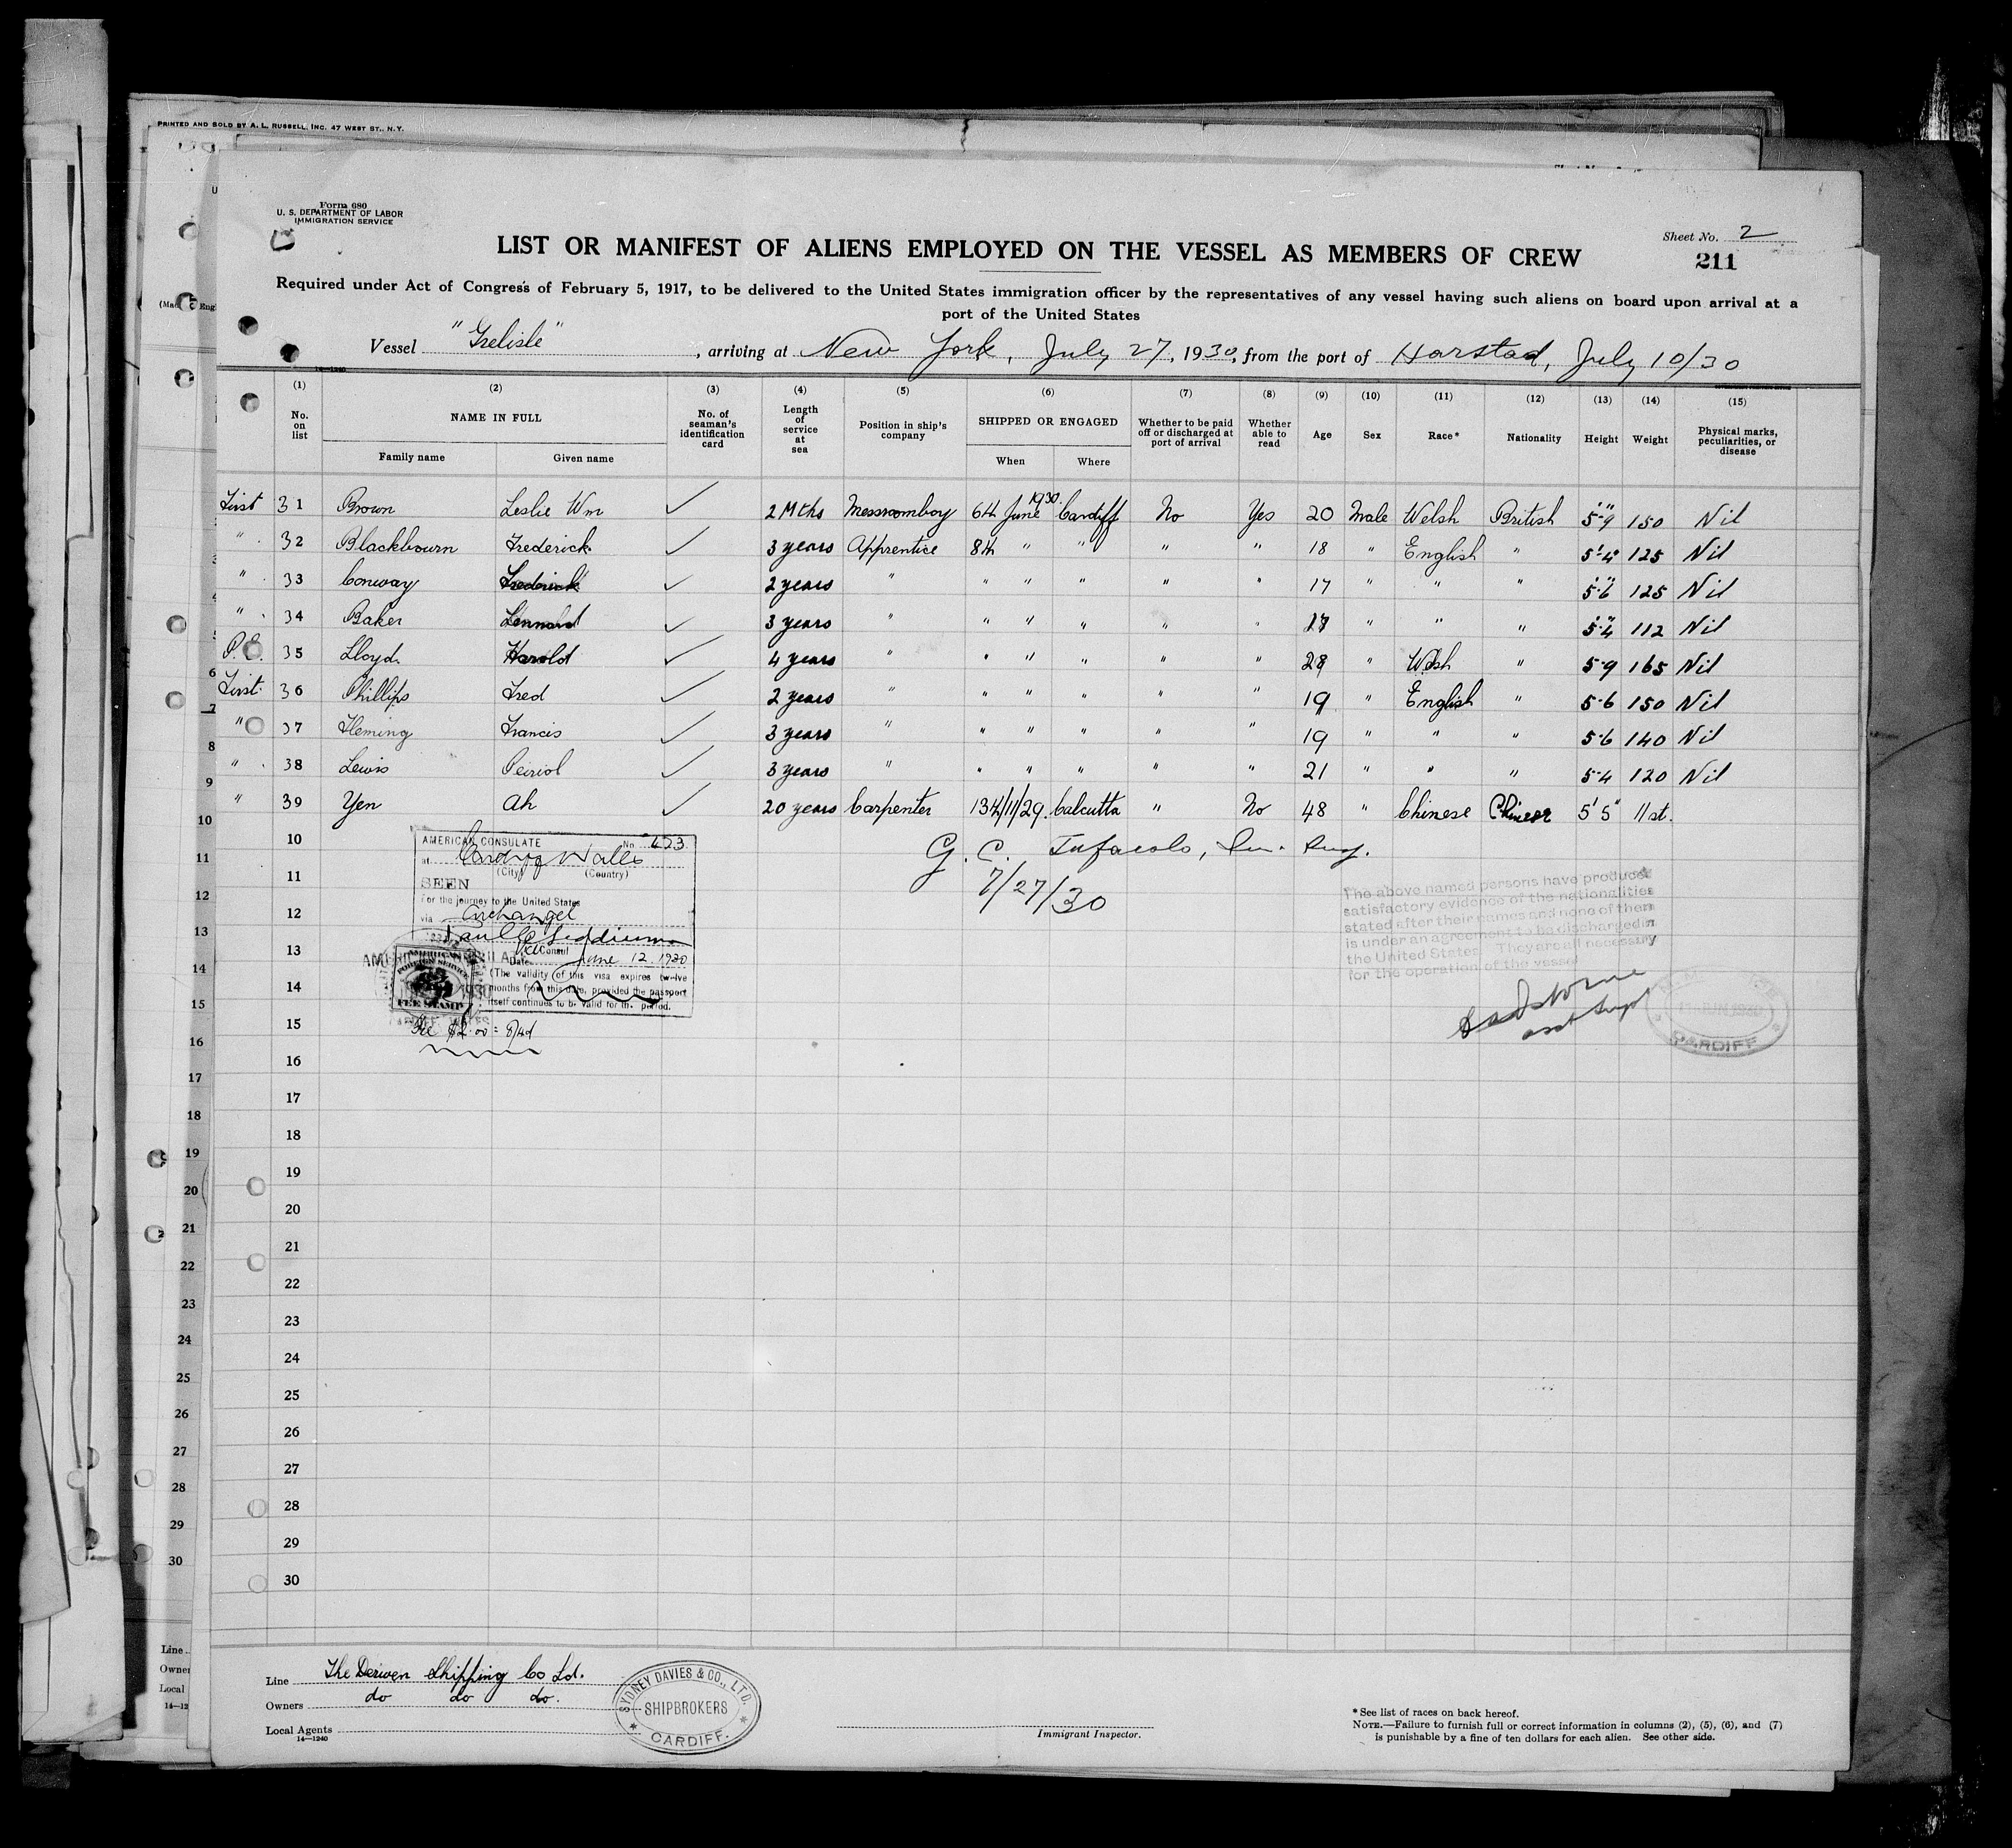 PRINTED AND SOLD BY A. L. RUSSELL, INC. 47 WEST ST., N.Y.
Form 680
U. S. DEPARTMENT OF LABOR
IMMIGRATION SERVICE
Sheet No. 2
211
LIST OR MANIFEST OF ALIENS EMPLOYED ON THE VESSEL AS MEMBERS OF CREW
Required under Act of Congress of February 5, 1917, to be delivered to the United States immigration officer by the representatives of any vessel having such aliens on board upon arrival at a
port of the United States
Vessel "Grelisle", arriving at New York, July 27, 1930, from the port of Harstad, July 10/30
14—1240
(1) (2) (3) (4) (5) (6) (7) (8) (9) (10) (11) (12) (13) (14) (15)
No. on list NAME IN FULL Family name Given name No. of seaman's identification card Length of service at sea Position in ship's company SHIPPED OR ENGAGED When Where Whether to be paid off or discharged at port of arrival Whether able to read Age Sex Race* Nationality Height Weight Physical marks, peculiarities, or disease
First 31 Brown Leslie Wm ✓ 2 Mths Messroomboy 6th June 1930. Cardiff No Yes 20 Male Welsh British 5'-9" 150 Nil
" 32 Blackbourn Frederick ✓ 3 years Apprentice 8th " " " " 18 " English " 5'-4" 125 Nil
" 33 Conway Frederick ✓ 2 years " " " " " " 17 " " " 5'-6" 125 Nil
" 34 Baker Lennard ✓ 3 years " " " " " " 17 " " " 5'-4" 112 Nil
P.E. 35 Lloyd. Harold ✓ 4 years " " " " " " 28 " Welsh " 5-9 165 Nil
First 36 Phillips Fred ✓ 2 years " " " " " " 19 " English " 5-6 150 Nil
" 37 Fleming Francis ✓ 3 years " " " " " " 19 " " " 5-6 140 Nil
" 38 Lewis Peiriol ✓ 3 years " " " " " " 21 " " " 5-4 120 Nil
" 39 Yen Ah ✓ 20 years Carpenter 13th/11/29. Calcutta " No 48 " Chinese Chinese 5' 5" 11st.
10
11
12
13
14
15
16
17
18
19
20
21
22
23
24
25
26
27
28
29
30
AMERICAN CONSULATE No. 423
at Cardiff Wales
(City) (Country)
SEEN
For the journey to the United States
via Archangel
Vice Consul
Date June 12 1930
(The validity of this visa expires twelve
months from this date, provided the passport
itself continues to be valid for th. period.
FEE STAMP
Fee $2.00 =
G. C.
7/27/30
The above named persons have produced
satisfactory evidence of the nationalities
stated after their names and none of them
is under an agreement to be discharged in
the United States. They are all necessary
for the operation of the vessel
Asst Supt
CARDIFF
Line The Derwen Shipping Co Ld.
Owners do do do.
Local Agents
14—1240
SYDNEY DAVIES & CO., LTD.
SHIPBROKERS
CARDIFF.
Immigrant Inspector.
*See list of races on back hereof.
NOTE.—Failure to furnish full or correct information in columns (2), (5), (6), and (7)
is punishable by a fine of ten dollars for each alien. See other side.